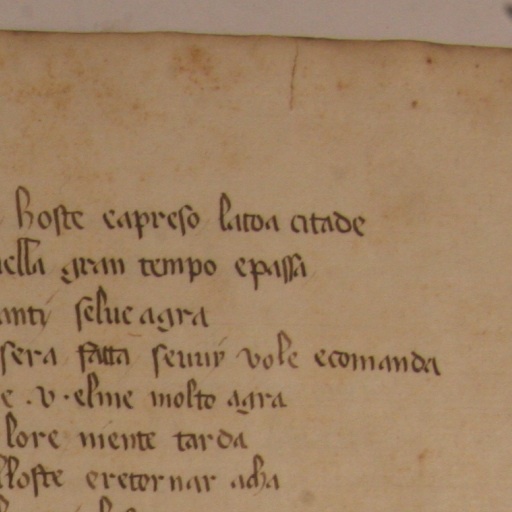 hoste eapreso latoa citade
ella gran tempo epassa
anti selue agra
sera fatta vole ecomanda
e .v. elme molto agra
lore niente tarda
lloste eretornar acha